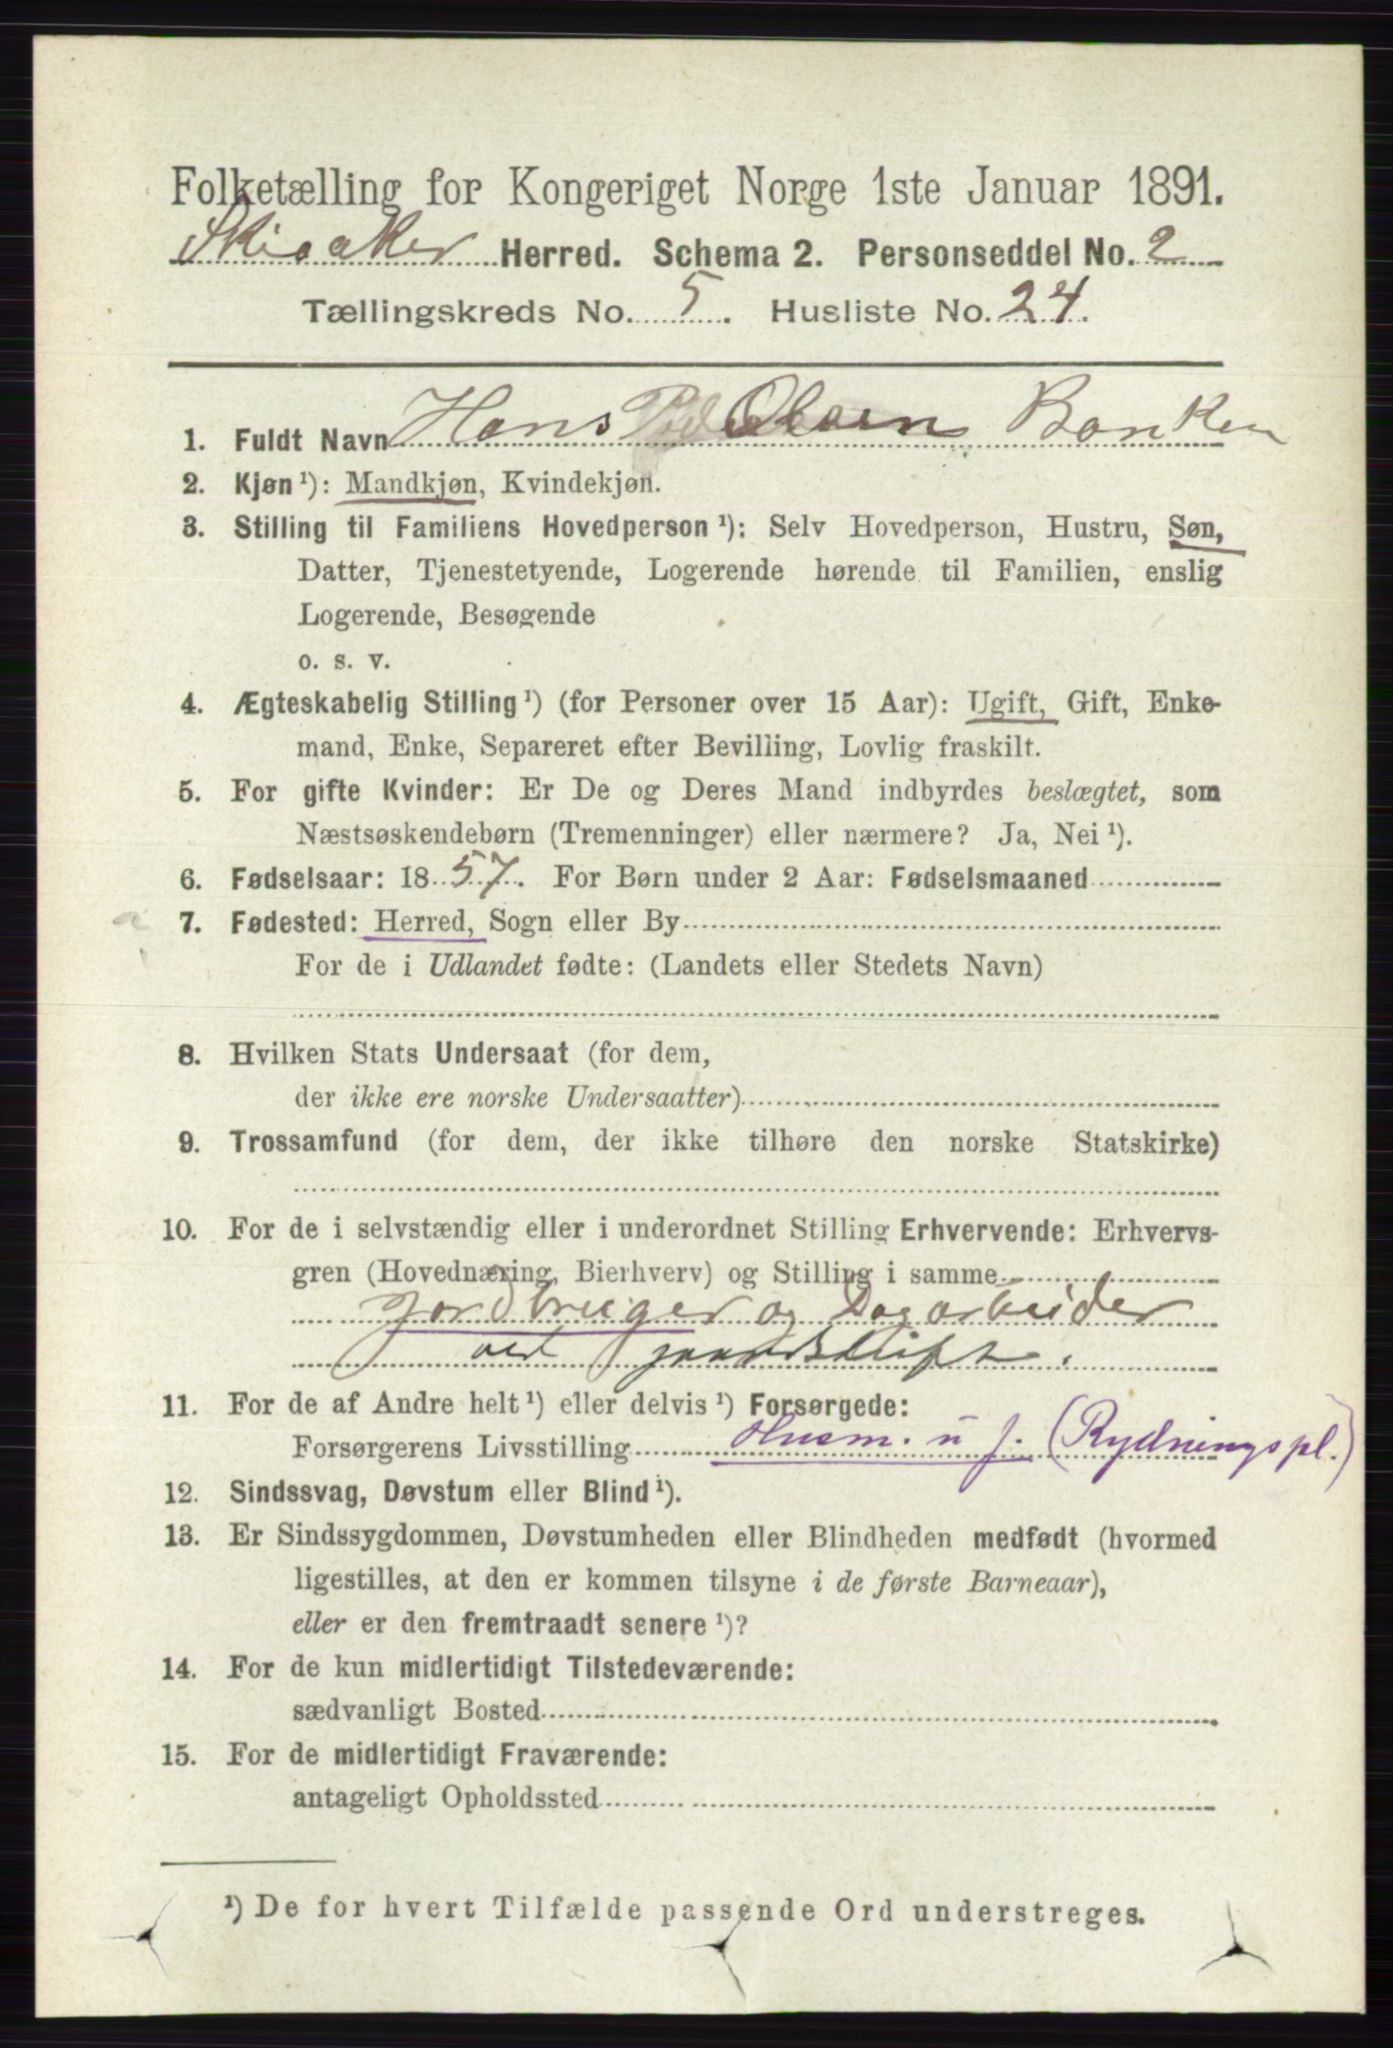 Folketælling for Kongeriget Norge 1ste Januar 1891.
Skiaaker Herred. Schema 2. Personseddel No. 2
Tællingskreds No. 5. Husliste No. 24.
1. Fuldt Navn Hans Olsen Banken
2. Kjøn¹): Mandkjøn, Kvindekjøn.
3. Stilling til Familiens Hovedperson¹): Selv Hovedperson, Hustru, Søn,
Datter, Tjenestetyende, Logerende hørende til Familien, enslig
Logerende, Besøgende
o. s. v.
4. Ægteskabelig Stilling¹) (for Personer over 15 Aar): Ugift, Gift, Enke-
mand, Enke, Separeret efter Bevilling, Lovlig fraskilt.
5. For gifte Kvinder: Er De og Deres Mand indbyrdes beslægtet, som
Næstsøskendebørn (Tremenninger) eller nærmere? Ja, Nei¹).
6. Fødselsaar: 1857. For Børn under 2 Aar: Fødselsmaaned
7. Fødested: Herred, Sogn eller By
For de i Udlandet fødte: (Landets eller Stedets Navn)
8. Hvilken Stats Undersaat (for dem,
der ikke ere norske Undersaatter)
9. Trossamfund (for dem, der ikke tilhøre den norske Statskirke)
10. For de i selvstændig eller i underordnet Stilling Erhvervende: Erhvervs-
gren (Hovednæring, Bierhverv) og Stilling i samme
Jordbruger og Dagarbeider
ved
11. For de af Andre helt¹) eller delvis¹) Forsørgede:
Forsørgerens Livsstilling Husm. u j. (Rydningspl.)
12. Sindssvag, Døvstum eller Blind¹).
13. Er Sindssygdommen, Døvstumheden eller Blindheden medfødt (hvormed
ligestilles, at den er kommen tilsyne i de første Barneaar),
eller er den fremtraadt senere¹)?
14. For de kun midlertidigt Tilstedeværende:
sædvanligt Bosted
15. For de midlertidigt Fraværende:
antageligt Opholdssted
¹) De for hvert Tilfælde passende Ord understreges.